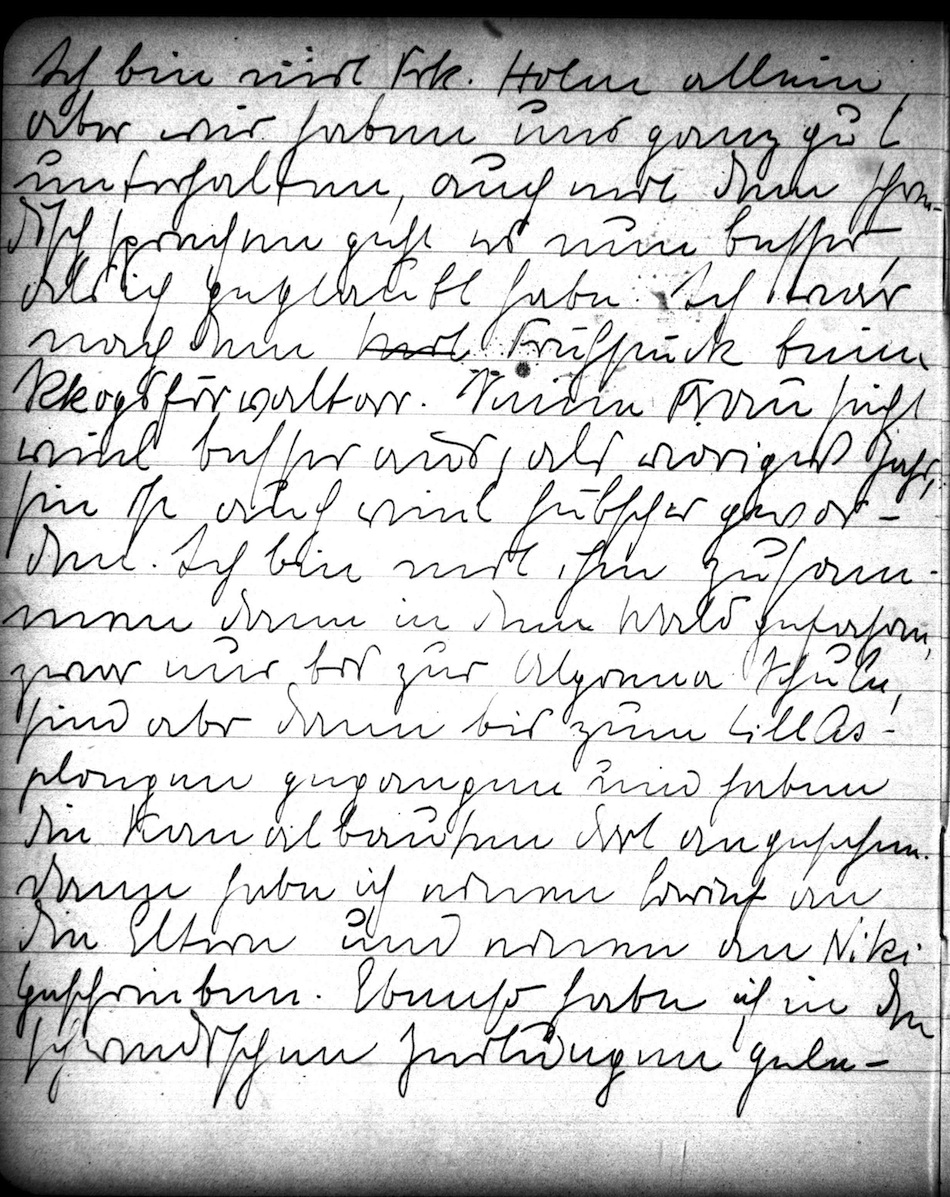 Ich bin mit Frk. Holm allein,
aber wir haben uns ganz gut
unterhalten, auch mit dem schwe-
disch sprechen geht es nun besser,
als ich geglaubt habe. Ich war
nach dem Frühstück beim
Skogsförvaltare. Seine Frau sieht
viel besser aus, als voriges Jahr,
sie ist auch viel hübscher gewor-
den. Ich bin mit ihm zusam-
men dann in den Wald gefahren,
zwar nur bis zur Schule,
sind aber dann bis zum Lillås-
plongen gegangen und haben
die Kanalbauten dort angesehen.
Dann habe ich einen Brief an
die Eltern und einen an Niki
geschrieben. Ebenso habe ich in den
schwedischen Zeitungen gele-